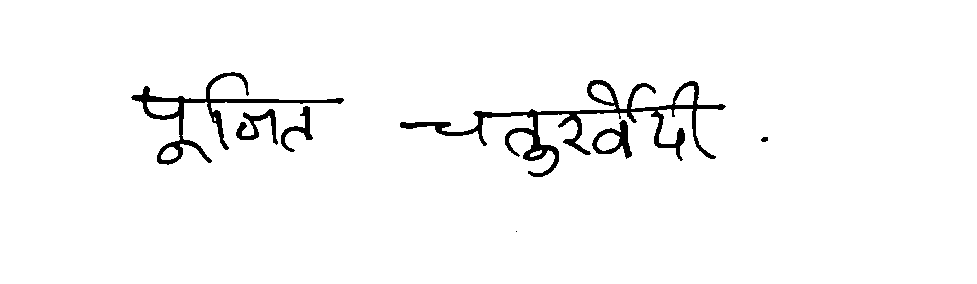 पूजित चतुरर्वेदी .